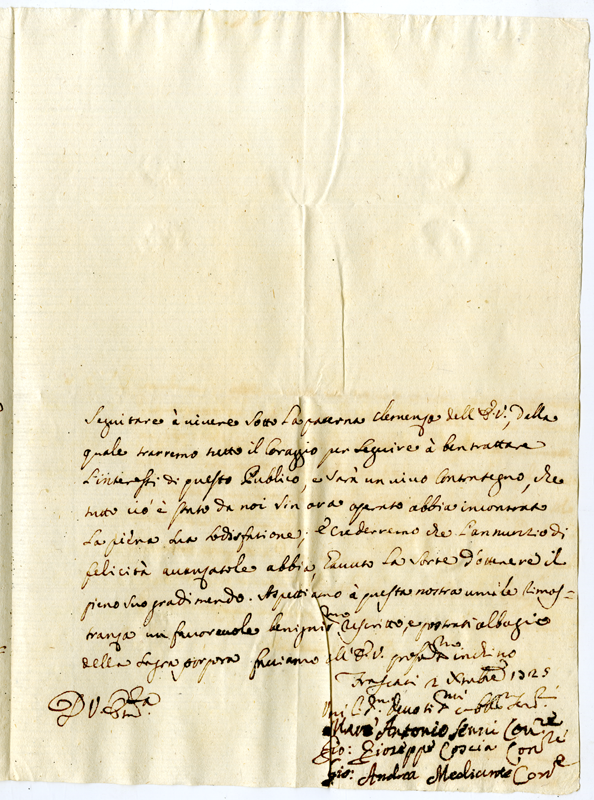 Seguitare à vivere sotto la paterna clemenza dell'E.V., dalla
quale trarremo tutto il coraggio per seguire à ben trattare
l'interessi di questo Publico, e sarà un vivo contrasegno, che
tutto ciò è stato da noi sin ora operato abbia incontrato
la piena sua sodisfatione; e crederremo che l'annunzio di
felicità avanzatole abbia avuto la sorte d'ottenere il
pieno suo gradimendo. Aspettiamo à questa nostra umile rimos-
tranza un favorevole benignmo rescritto, e postrati al bagio
della sagra porpora facciamo all'E.V. profmo inchino
Frascati 2 Xmbre 1725
D V Emza
Antonio Senni Conre
Gio: Gioseppe Coscia Conre
Gio: Andrea Mediante Conre